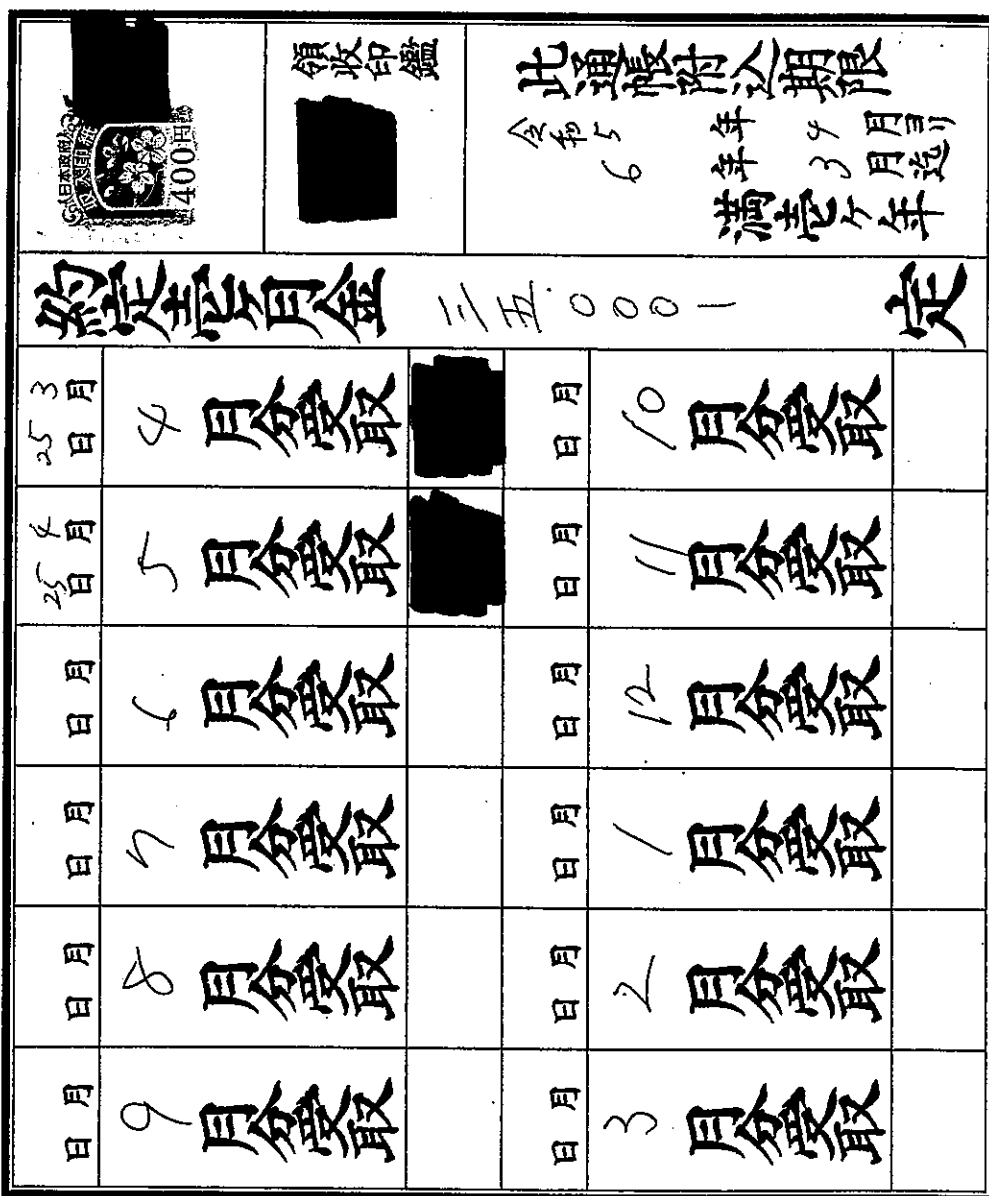 此通帳附込期限
令和5年4月ヨリ
6年3月迄
満壱ヶ年
領収印鑑
日本政府
収入印紙
400円
約定壱ヶ月金 三五.000一 定
3月25日 4月分受取
4月25日 5月分受取
月日 6月分受取
月日 7月分受取
月日 8月分受取
月日 9月分受取
月日 10月分受取
月日 11月分受取
月日 12月分受取
月日 1月分受取
月日 2月分受取
月日 3月分受取